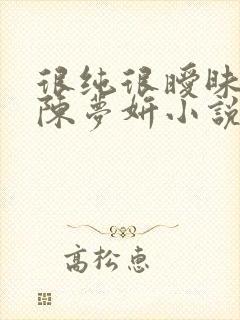 很纯很曖昧
陈夢妍小說
高松惠